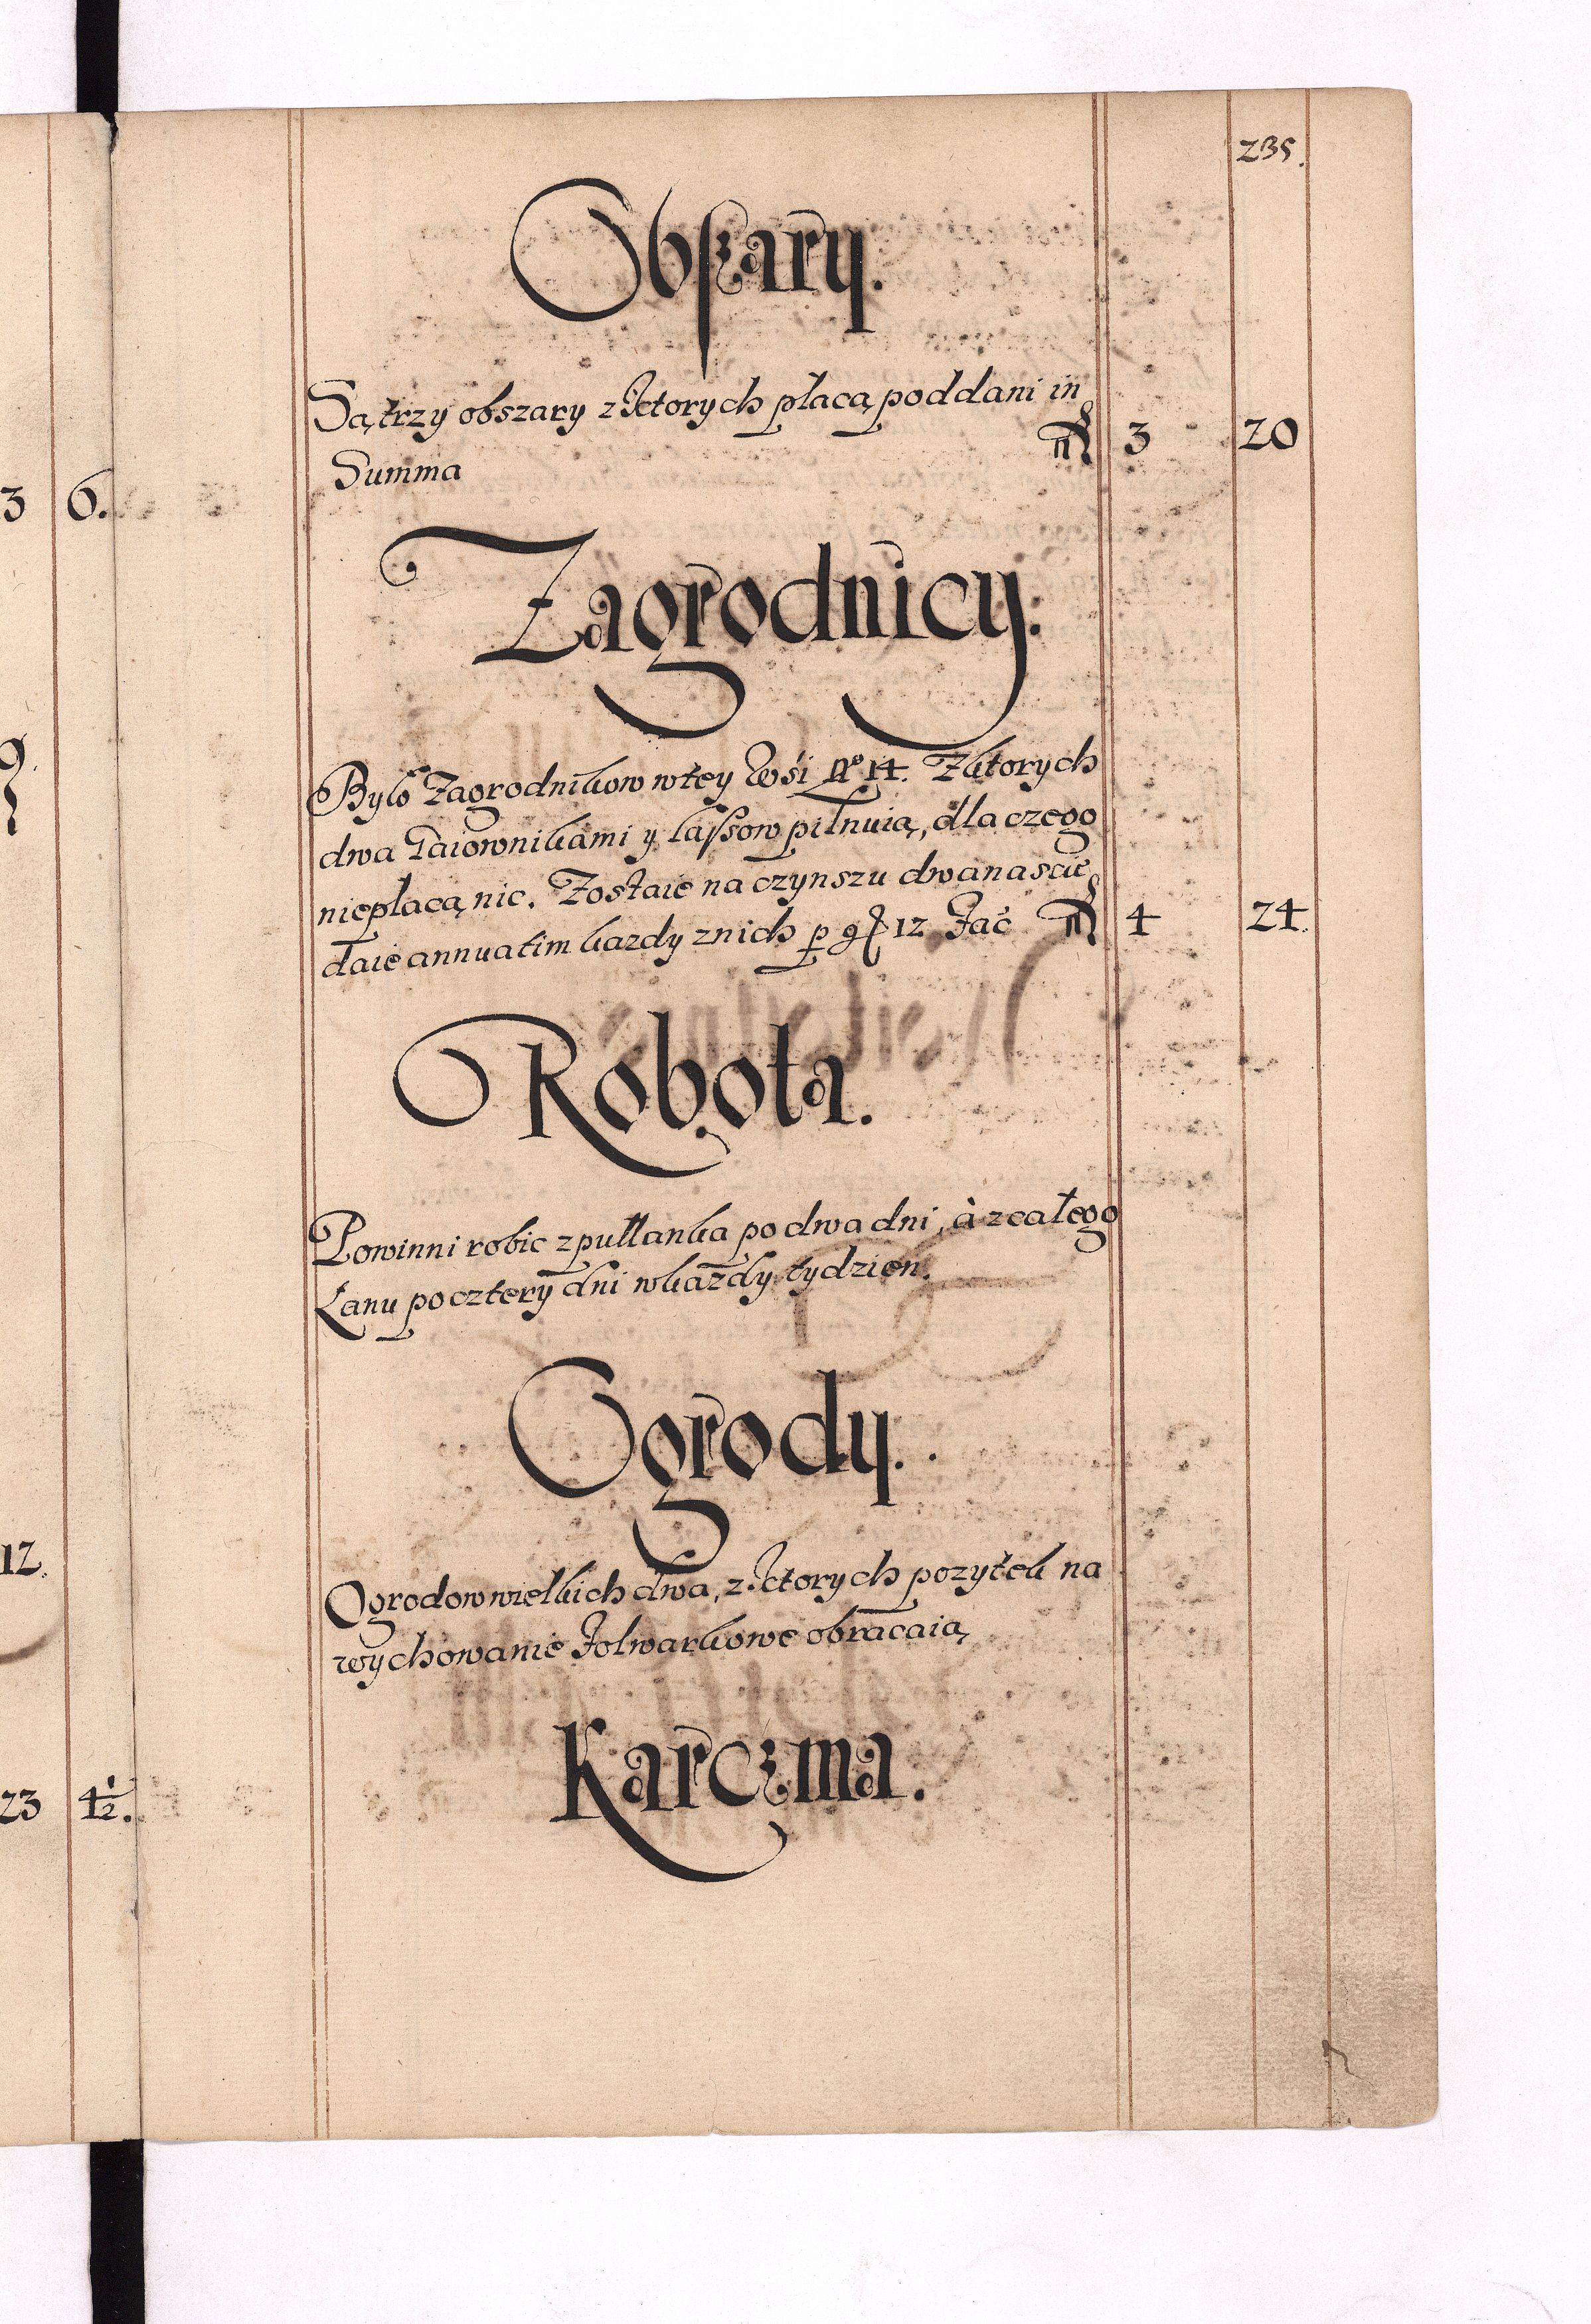 235.
Obszary.
Są trzy obszary z ktorych płacą poddani in
Summa fl 3 20
Zagrodnicy.
Było Zagrodnikow w tey Wsi No 14. Z ktorych
dwa Gaiownikami y lassow pilnuią, dla czego
nie płacą nic. Zostaie na czynszu dwanascie
daie annuatim kazdy z nich p gr 12 Fac fl 4 24.
Robota.
Powinni robic z pułłanka po dwa dni, à z całego
Łanu po cztery dni w kazdy tydzien.
Ogrody.
Ogrodow wielkich dwa, z ktorych pozytek na
wychowanie folwarkowe obracaią
Karczma.
3 6.
12.
23 4½.